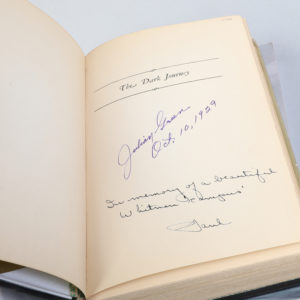 The Dark Journey
Julian Green
Oct. 10, 1929
In memory of a beautiful
Whitman
Paul